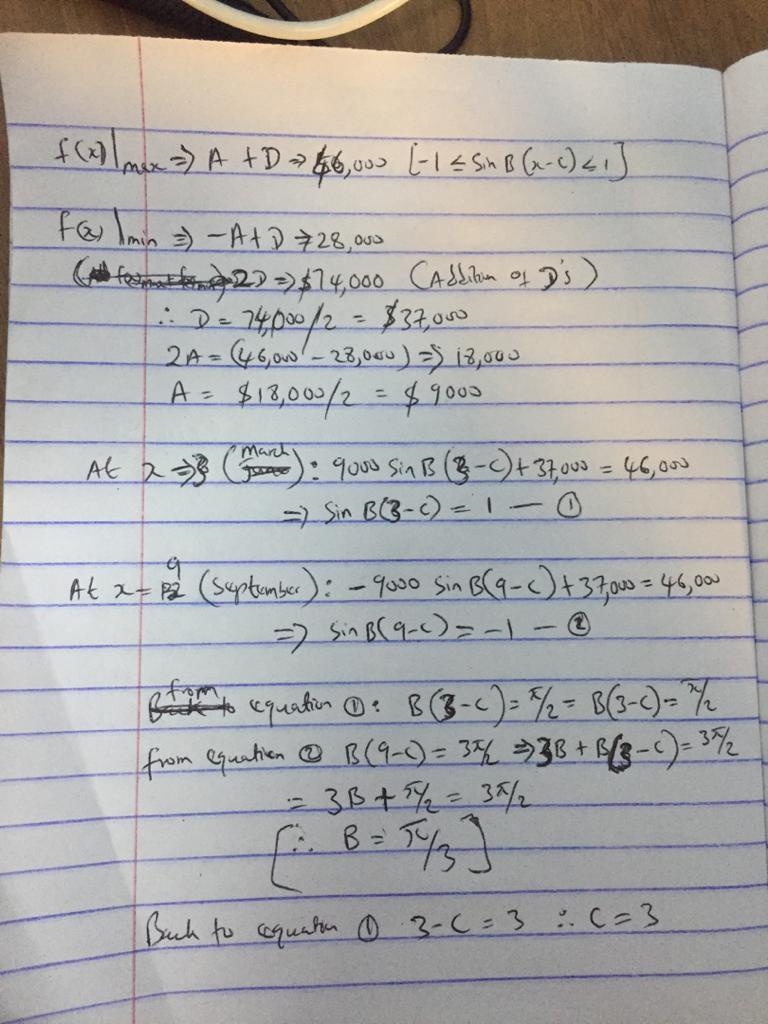 f(x)|max ⇒ A + D ⇒ $46,000 [-1 ≤ Sin B (x-c) ≤ 1]
f(x)|min ⇒ -A + D ⇒ 28,000
2D ⇒ $74,000 (Addition of D's)
∴ D = 74,000/2 = $37,000
2A = (46,000 - 28,000) ⇒ 18,000
A = $18,000/2 = $9000
At x ⇒ 3 (March): 9000 Sin B (3-c) + 37,000 = 46,000
⇒ Sin B(3-c) = 1 — ①
At x = 9 (September): -9000 Sin B(9-c) + 37,000 = 46,000
⇒ Sin B(9-c) = -1 — ②
from equation ①: B(3-c) = π/2 = B(3-c) = π/2
from equation ② B(9-c) = 3π/2 ⇒ 3B + B(3-c) = 3π/2
= 3B + π/2 = 3π/2
[∴ B = π/3]
Back to equation ① 3-c = 3 ∴ c = 3